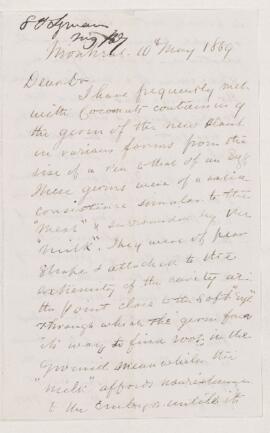 S H Lyman
Montreal 10th May 1869
Dear Dr
I have frequently met
with Coconuts containing
the germ of the new plant
in various forms from the
size of a pea to that of an Egg
These germs were of a
consistence similar to the
"Meat" & surrounded by the
"milk". They were of pear
shape & attached to the
extremity of the cavity at
the point close to the soft "eye"
through which the germ forces
its way to find root in the
ground meanwhile the
"milk" affords nourishment
to the Embryo until it